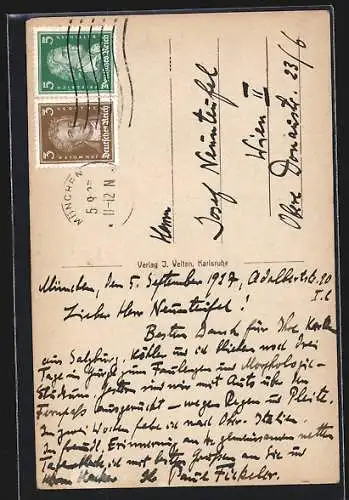 5
Deutsches Reich
3
Deutsches Reich
MÜNCHEN
5.9.27
11-12 N
Herrn
Josef Neunteufel
Wien II
Obere Donaustr. 23/6
Verlag J. Velten, Karlsruhe
München, den 5. September 1927, Adalbertstr.
Lieber Herr Neunteufel!
Besten Dank für Ihre Karten
aus Salzburg. Köhler und ich blieben noch drei
Tage in zum Faulenzen und Morphologie-
Studium. Gestern sind wir mit Auto über den
Fernpass ausgerückt – wegen Regen und Pleite.
In zwei Wochen fahre ich nach Ober-Italien.
In Erinnerung an die gemeinsamen netten
Tage ich mit besten Grüßen an Sie und
Herrn Ihr Paul Fickeler.